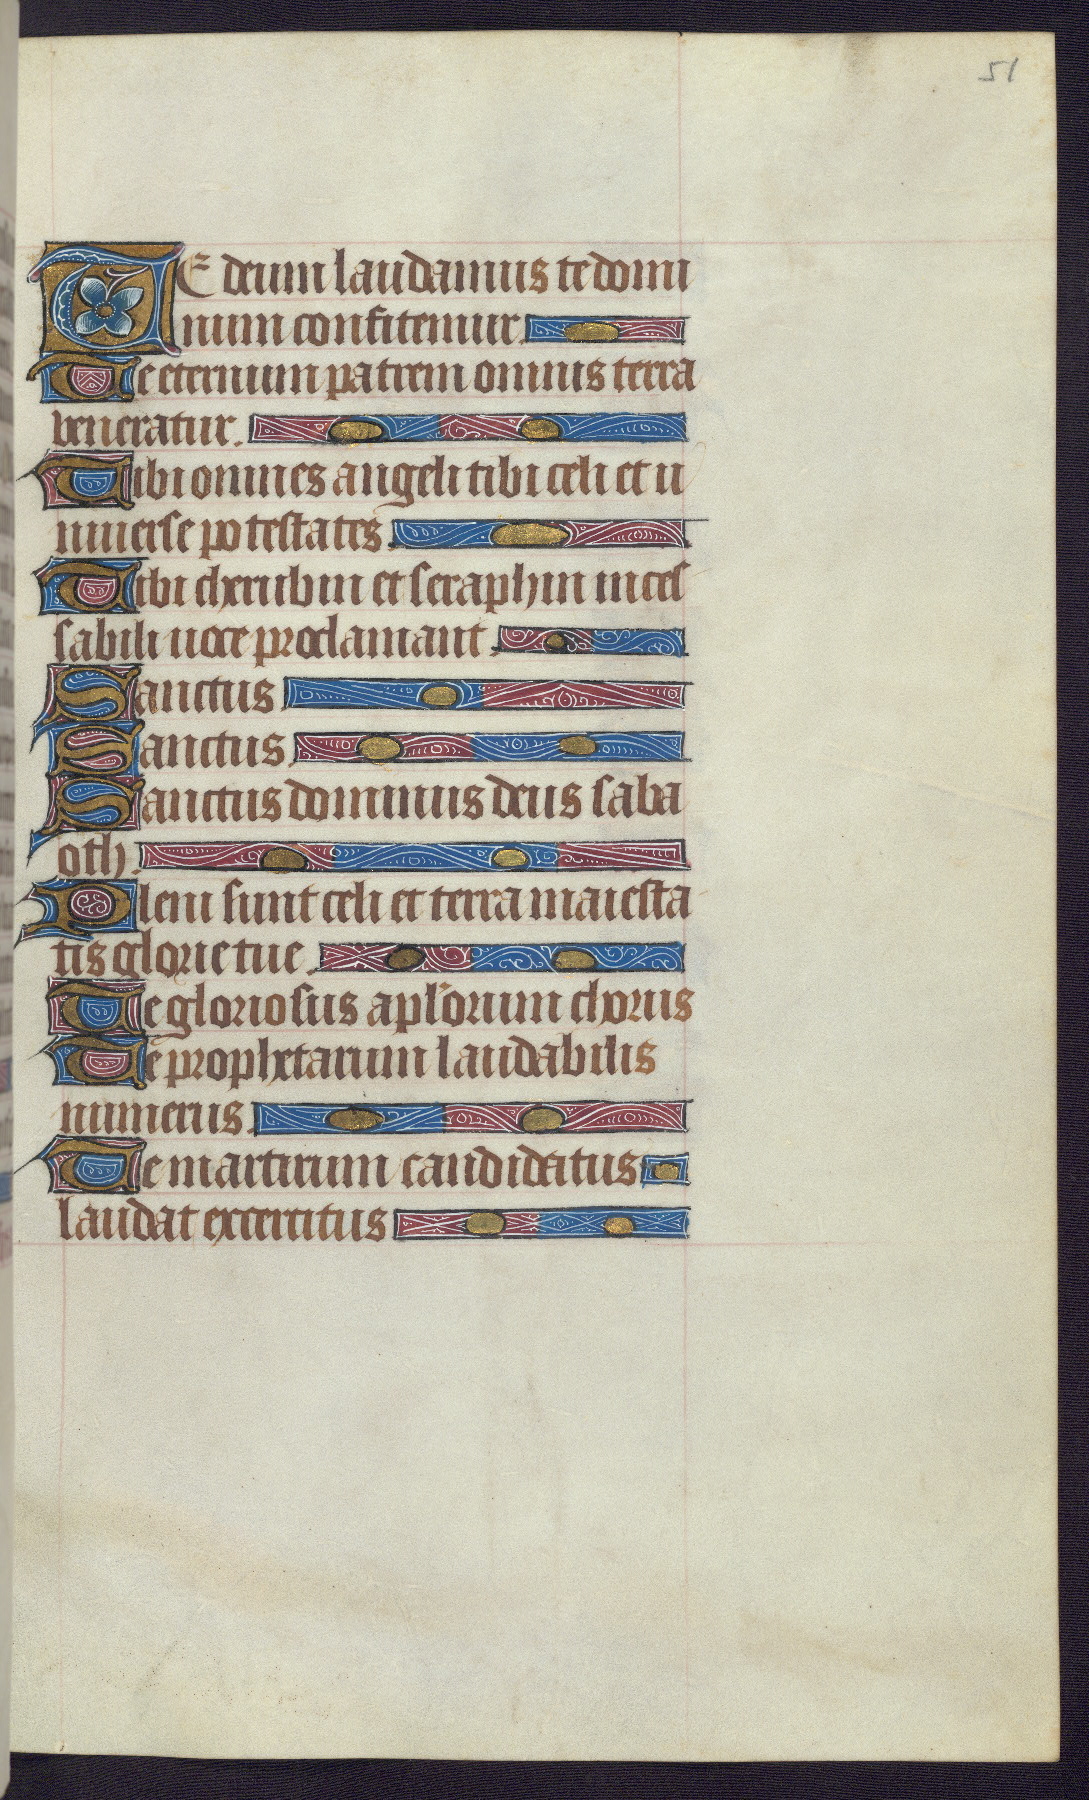 51
TE deum laudamus te domi
num confitemur.
Te eternum patrem omnis terra
veneratur.
Tibi omnes angeli tibi celi et u
niuerse potestates.
Tibi cherubin et seraphin inces
sabili uoce proclamant.
Sanctus.
Sanctus.
Sanctus dominus deus saba
oth.
Pleni sunt celi et terra maiesta
tis glorie tue.
Te gloriosus apl'orum chorus
Te prophetarum laudabilis
numerus.
Te martirum candidatus
laudat excercitus